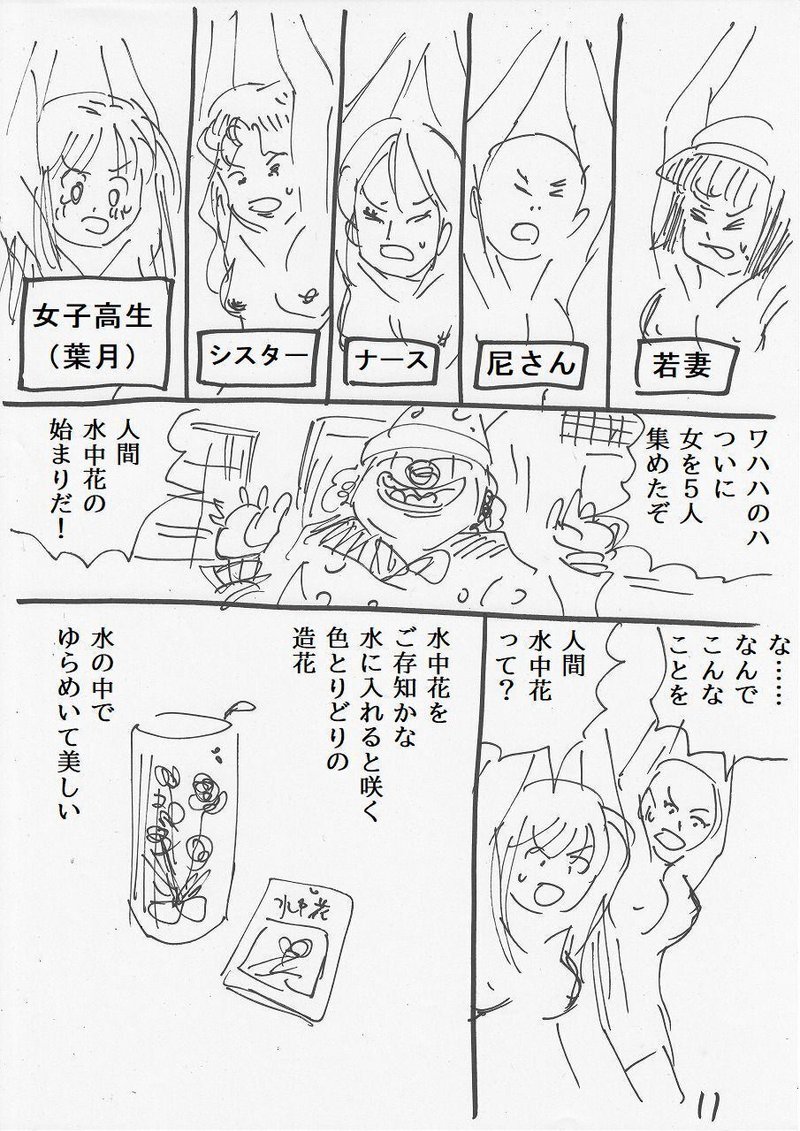 若妻
尼さん
ナース
シスター
女子高生
（葉月）
ワハハのハ
ついに
女を５人
集めたぞ
人間
水中花の
始まりだ！
な……
なんで
こんな
ことを
人間
水中花
って？
水中花を
ご存知かな
水に入れると咲く
色とりどりの
造花
水の中で
ゆらめいて美しい
水中花
11